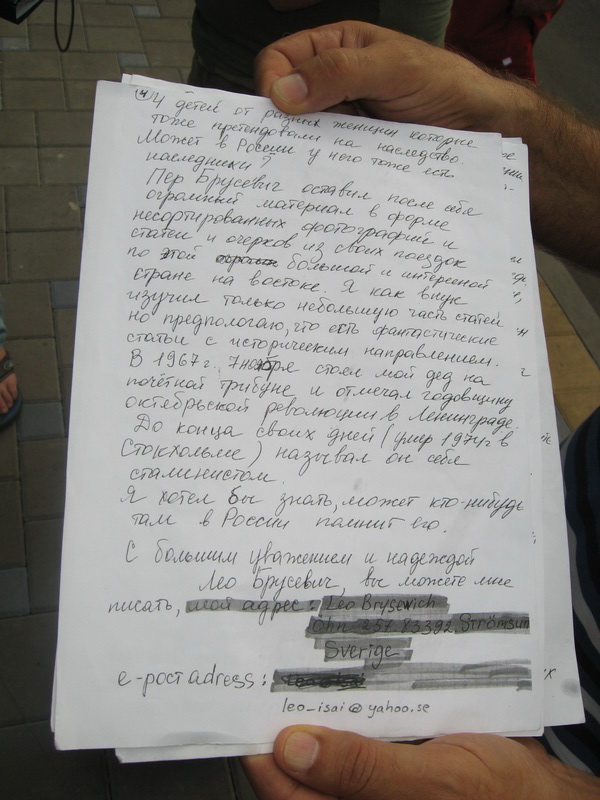 ④ 4 детей от разных женщин которые
тоже претендовали на наследство.
Может в России у него тоже есть
наследники?
Пер Брусевич оставил после себя
огромный материал в форме
несортированных фотографий и
статей и очерков из своих поездок
по этой большой и интересной
стране на востоке. Я как внук
изучил только небольшую часть статей
но предпологаю, что есть фантастические
статьи с историческим направлением.
В 1967г. 7 ноября стоял мой дед на
почётной трибуне и отмечал годовщину
октябрьской революции в Ленинграде.
До конца своих дней (умер 1974г в
Стокхольме) называл он себя
сталинистом.
Я хотел бы знать, может кто-нибудь
там в России помнит его.
С большим уважением и надеждой
Лео Брусевич, вы можете мне
писать, мой адрес: Leo Brysewich
Öhn 257 83392 Strömsun
Sverige
e-post adress:
leo_isai@yahoo.se